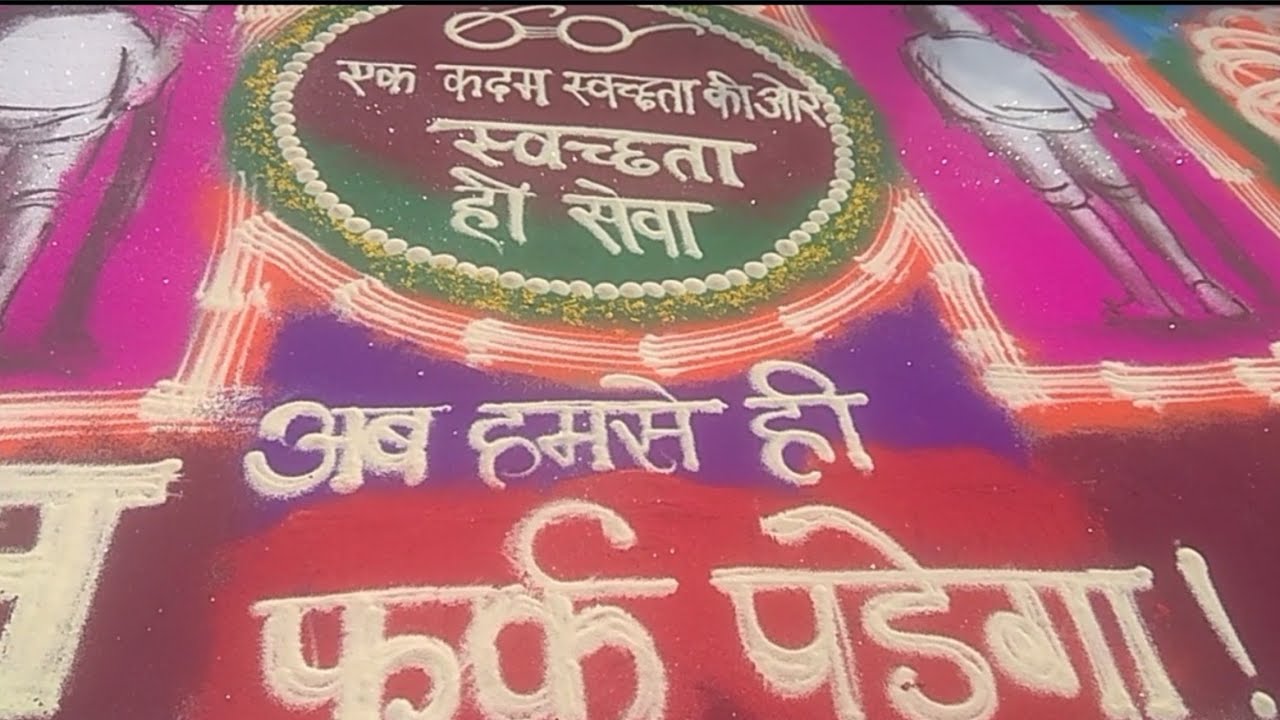 एक कदम स्वच्छता की ओर
स्वच्छता
ही सेवा
अब हमसे ही
फर्क पडेगा!